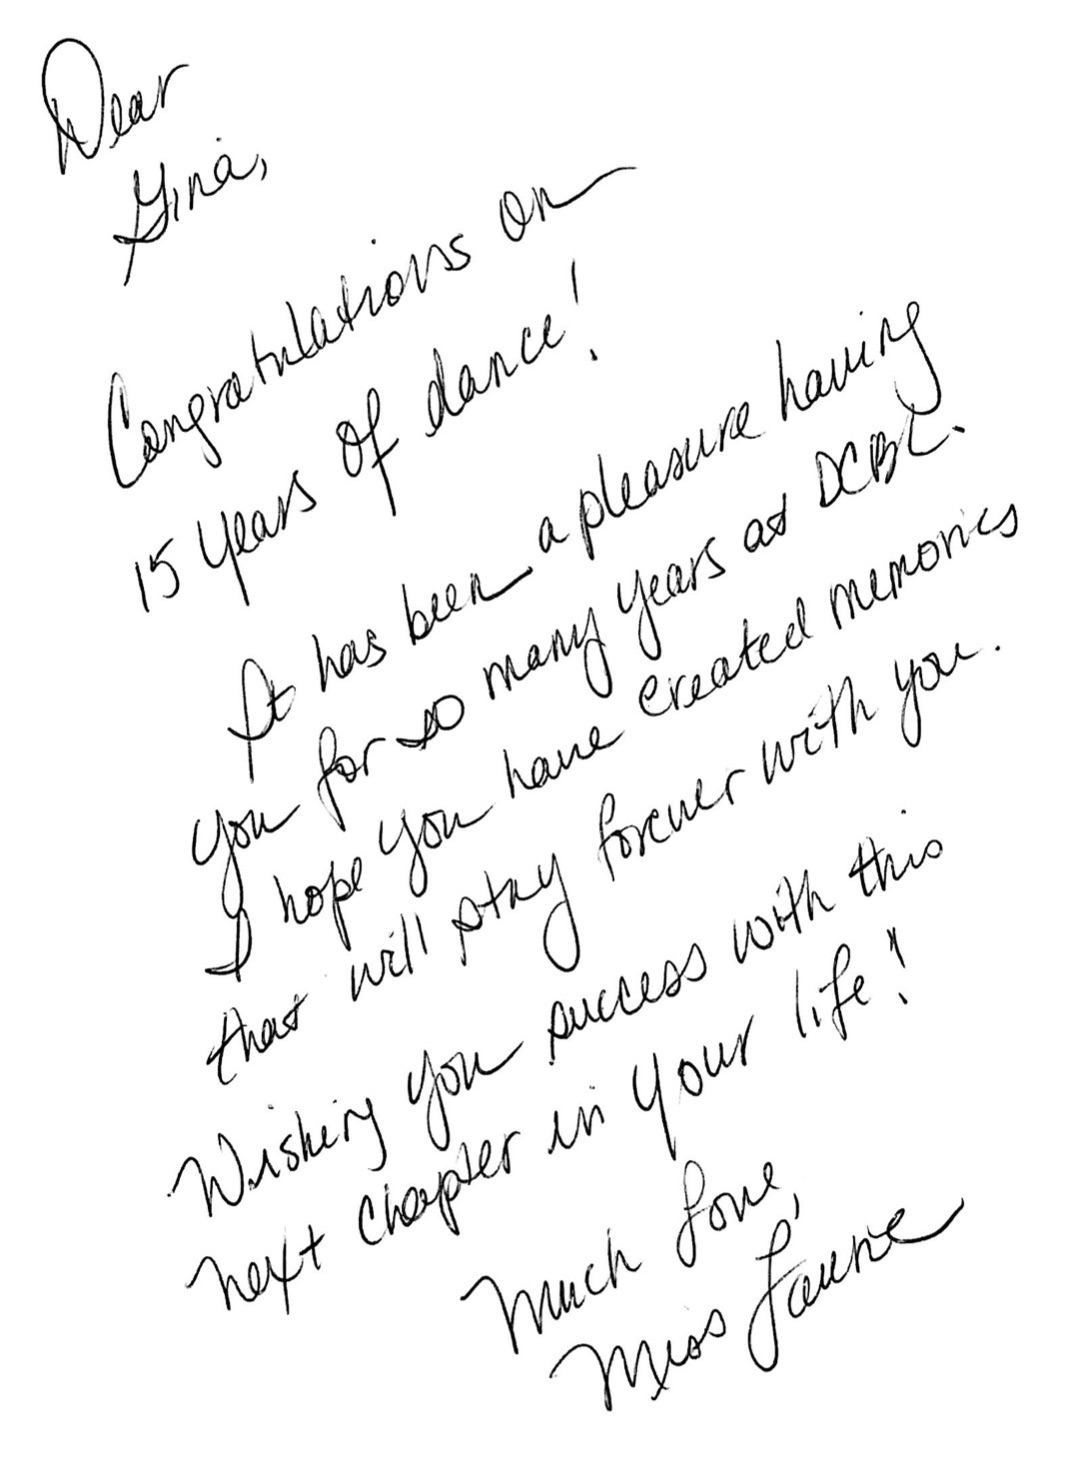 Dear
Gina,
Congratulations on
15 years of dance!
It has been a pleasure having
you for so many years at DCBL.
I hope you have created memories
that will stay forever with you.
Wishing you success with this
next chapter in your life!
Much Love,
Miss